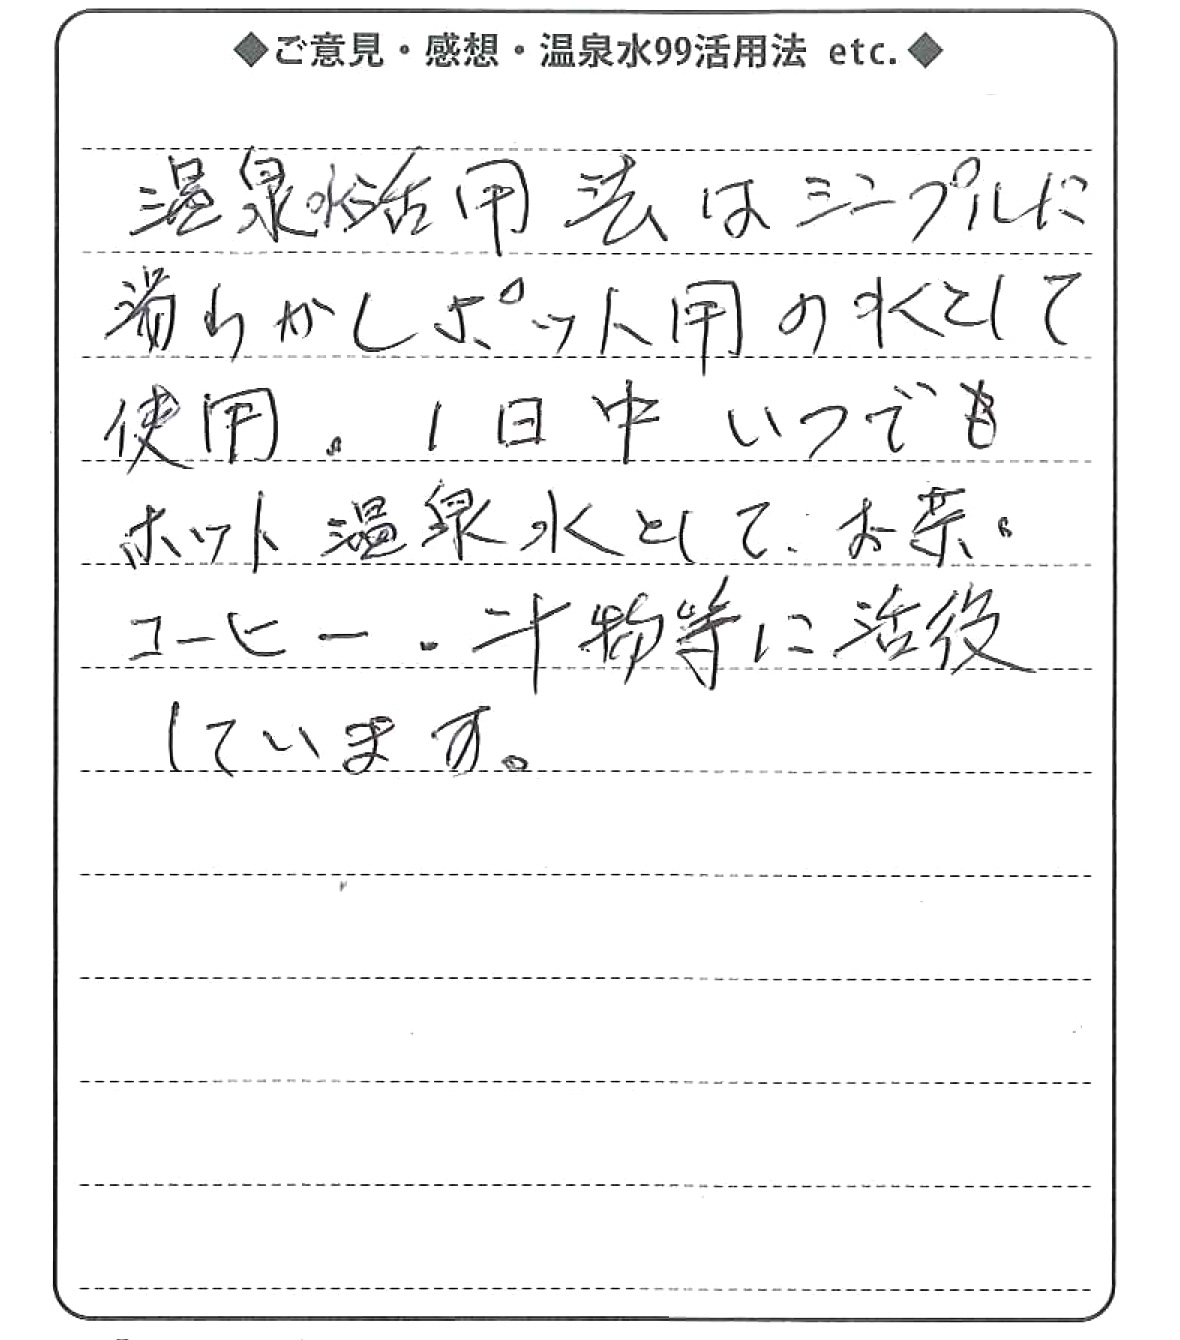 ◆ご意見・感想・温泉水99活用法 etc.◆
温泉水活用法はシンプルに
湯わかしポット用の水として
使用。1日中いつでも
ホット温泉水として、お茶・
コーヒー・汁物等に活役
しています。